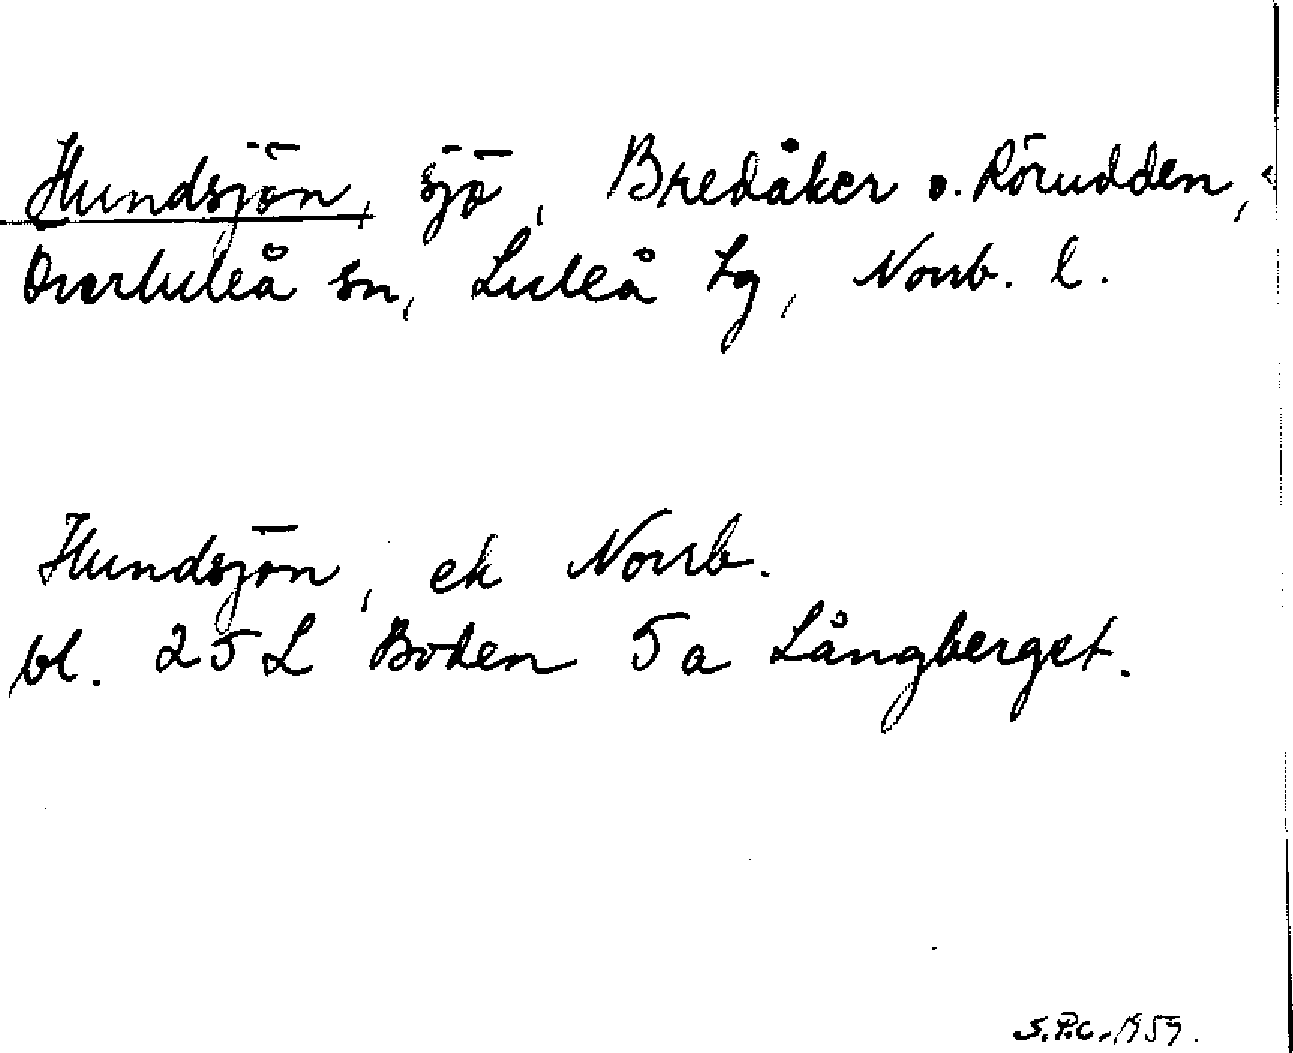 Hundsjön, sjö, Bredåker o. Rörudden,
Överluleå sn, Luleå tg, Norrb. l.
Hundsjön, ek Norrb.
bl. 25 L Boden 5 a Långberget.
S.P.C. 1959.